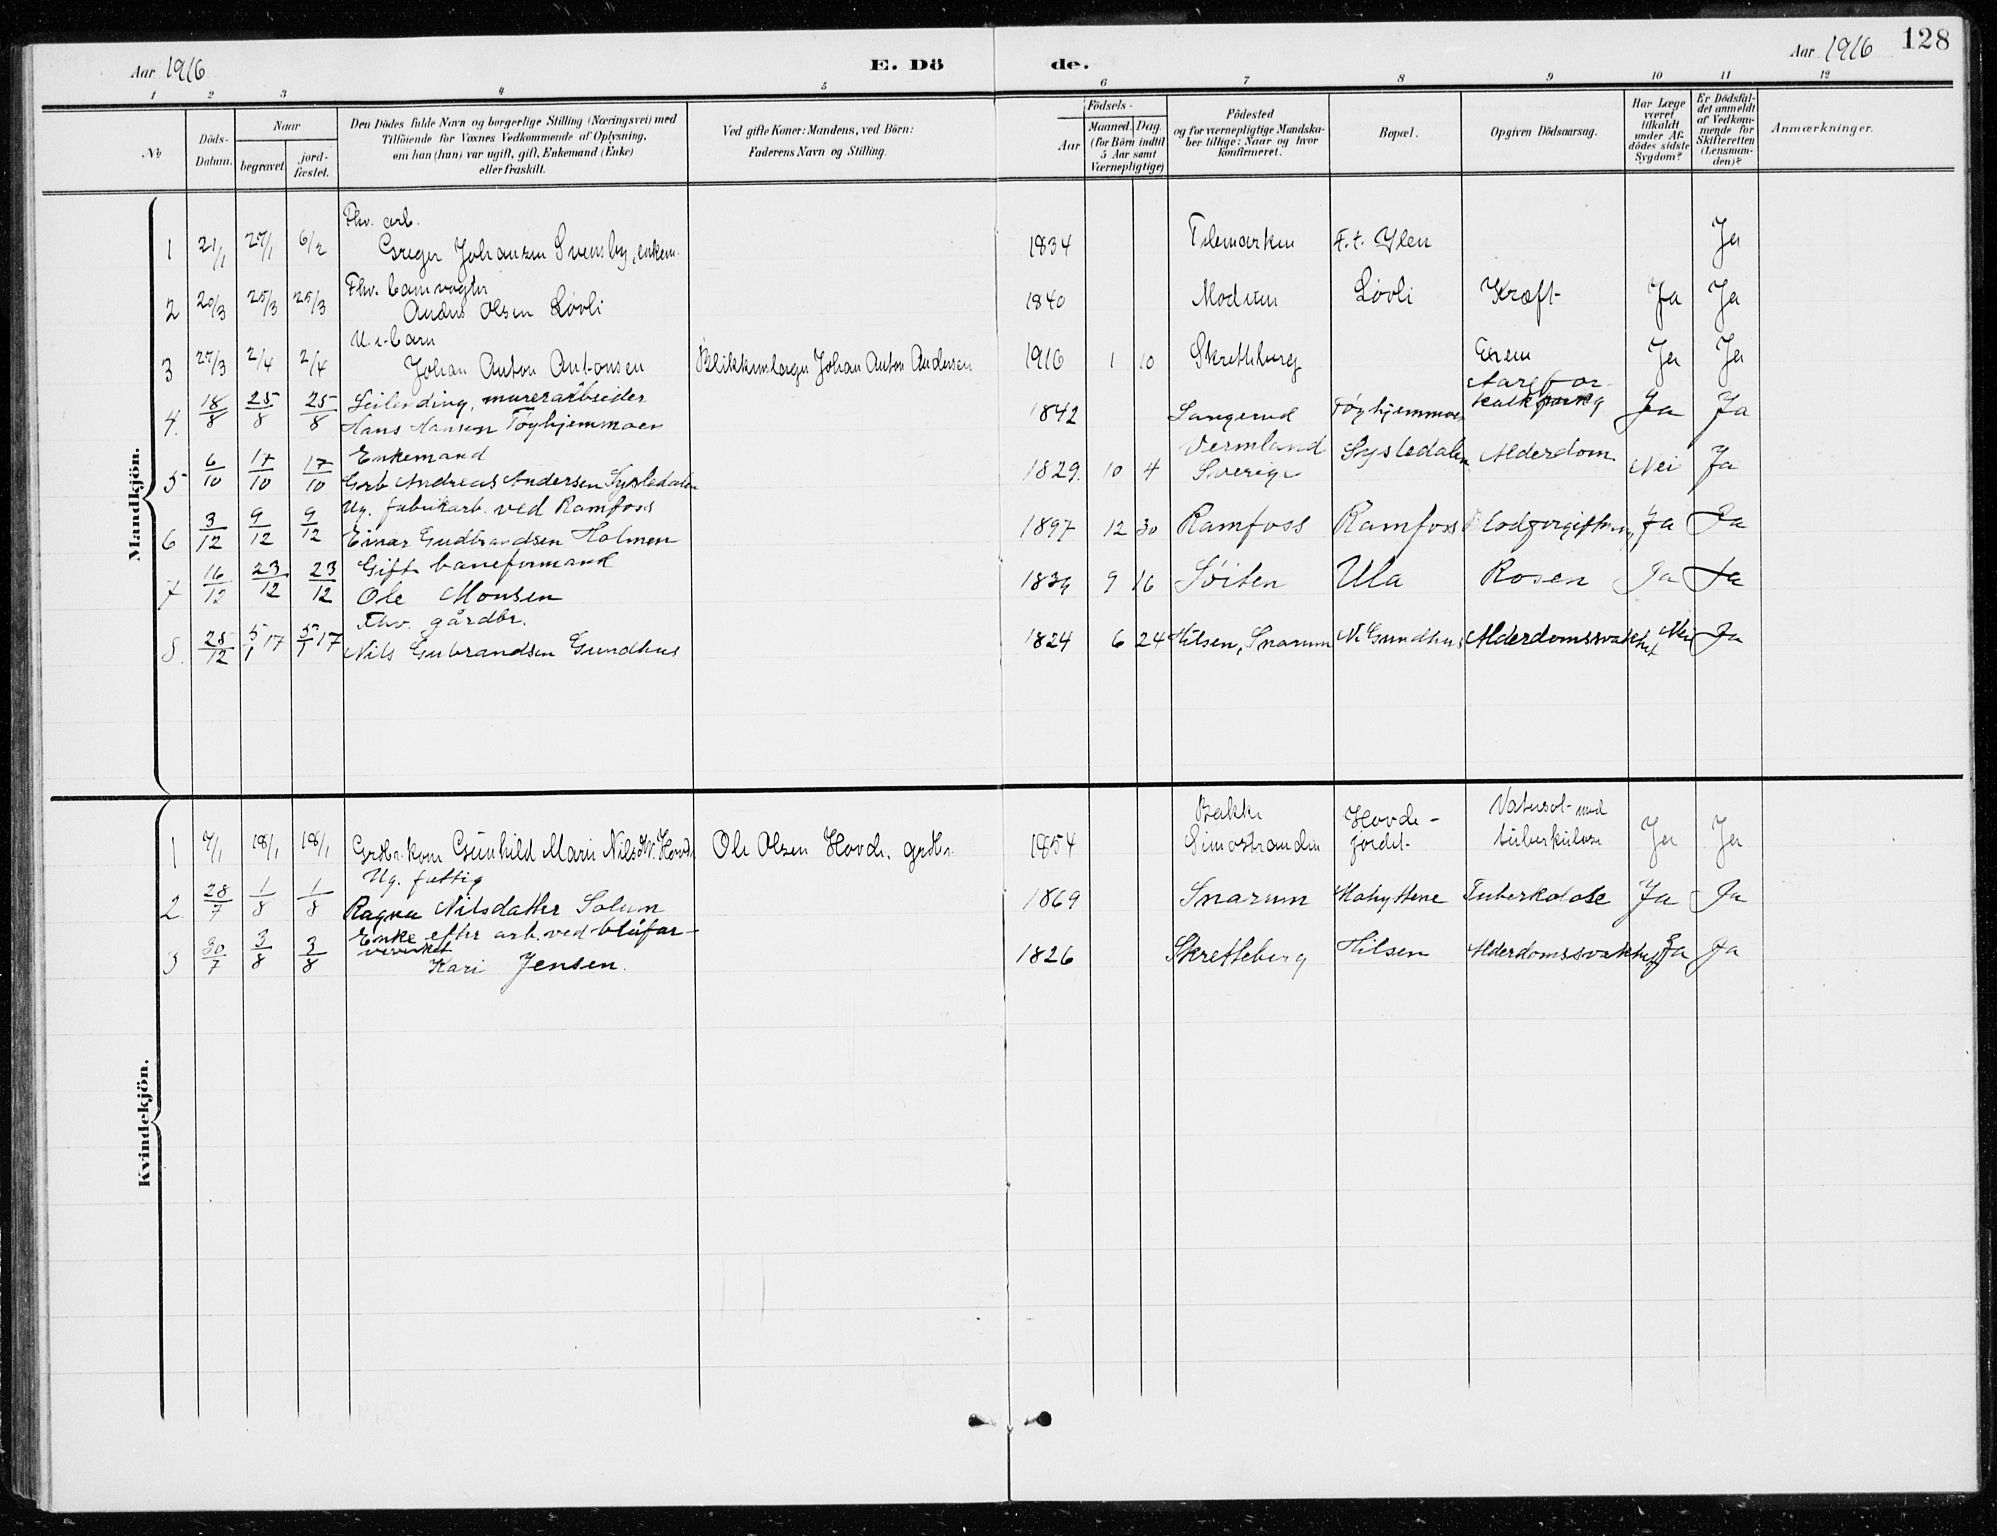 128
Aar 1916
E. Dö de.
Aar 1916
1 2 3 4 5 6 7 8 9 10 11 12
No
Döds-Datum.
Naar
begravet.
jord-fæstet.
Den Dödes fulde Navn og borgerlige Stilling (Næringsvei) med
Tilföiende for Voxnes Vedkommende af Oplysning,
om han (hun) var ugift, gift, Enkemand (Enke)
eller fraskilt.
Ved gifte Koner: Mandens, ved Börn:
Faderens Navn og Stilling.
Födsels-
Aar
Maaned. Dag.
(for Börn indtil
5 Aar samt
Værnepligtige)
Födested
og for værnepligtige Mandska-
ber tillige: Naar og hvor
konfirmeret.
Bopæl.
Opgiven Dödsaarsag.
Har Læge
været
tilkaldt
under Af-
dödes sidste
Sygdom?
Er Dödsfal-
det anmeldt
af Vedkom-
mende for
Skifteretten
(Lensman-
den)?
Anmærkninger.
Mandkjön.
Fhv. arb.
1 21/1 27/1 6/2 Greger Johansen Svensby, enkem. 1834 Telemarken F.t. Ylen Ja
Fhv. banevogter
2 20/3 25/3 25/3 Anders Olsen Løvli 1840 Modum Løvli Kræft Ja Ja
U. e. barn
3 27/3 2/4 2/4 Johan Anton Antonsen Blikkenslager Johan Anton Andersen 1916 1 10 Skretteberg Exem Ja Ja
Leilending, murerarbeider Aarefor-
4. 18/8 25/8 25/8 Hans Hansen Tøyhjemmoen 1842 Langerud Tøyhjemmoen kalkning Ja Ja
Enkemand Vermland
5 6/10 17/10 17/10 Gårb. Andreas Andersen Sysledalen 1829. 10 4 Sverige Sysledalen Alderdom Nei Ja
Ug. fabrikarb. ved Ramfoss
6 3/12 9/12 9/12 Einar Gudbrandsen Holmen 1897 12 30 Ramfoss Ramfoss Blodforgiftning Ja Ja
Gift baneformand
7 16/12 23/12 23/12 Ole Monsen 1839 9 16 Løiten Ula Rosen Ja Ja
Fhv. gårdbr.
8. 25/12 5/1 17 5/1 17 Nils Gubrandsen Gundhus 1824 6 24 Hilsen, Snarum N. Gundhus Alderdomssvakhet Nei Ja
Kvindekjön.
Bakke Hovde- Vatersot med
1 7/1 18/1 18/1 Grdbr.kone Gunhild Marie Nilsdtr. Hovde Ole Olsen Hovde, grdbr. 1854 Simostranden jordet tuberkulose Ja Ja
Ug. fattig
2. 28/7 1/8 1/8 Ragna Nilsdatter Solum 1869 Snarum Mohyttene Tuberkolose Ja Ja
Enke efter arb. ved blåfar-
ververket
3 30/7 3/8 3/8 Kari Jensen. 1826 Skretteberg Hilsen Alderdomssvakhet Ja Ja